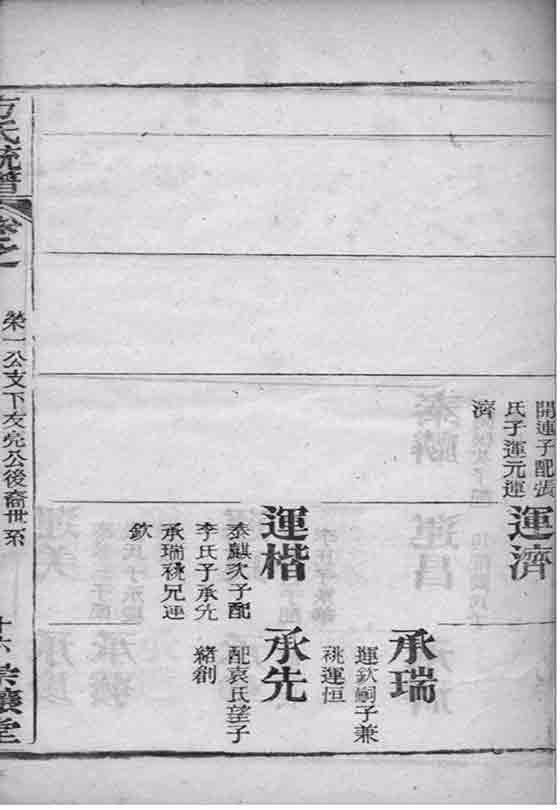 開連子配張
氏子運元運
濟
運濟
運楷
泰麒次子配
李氏子承先
承瑞祧兄運
欽
承瑞
運欽嗣子兼
祧運恒
承先
配袁氏望子
緒創
方氏統譜
卷之
榮一公支下友亮公後裔世系
十六
堂